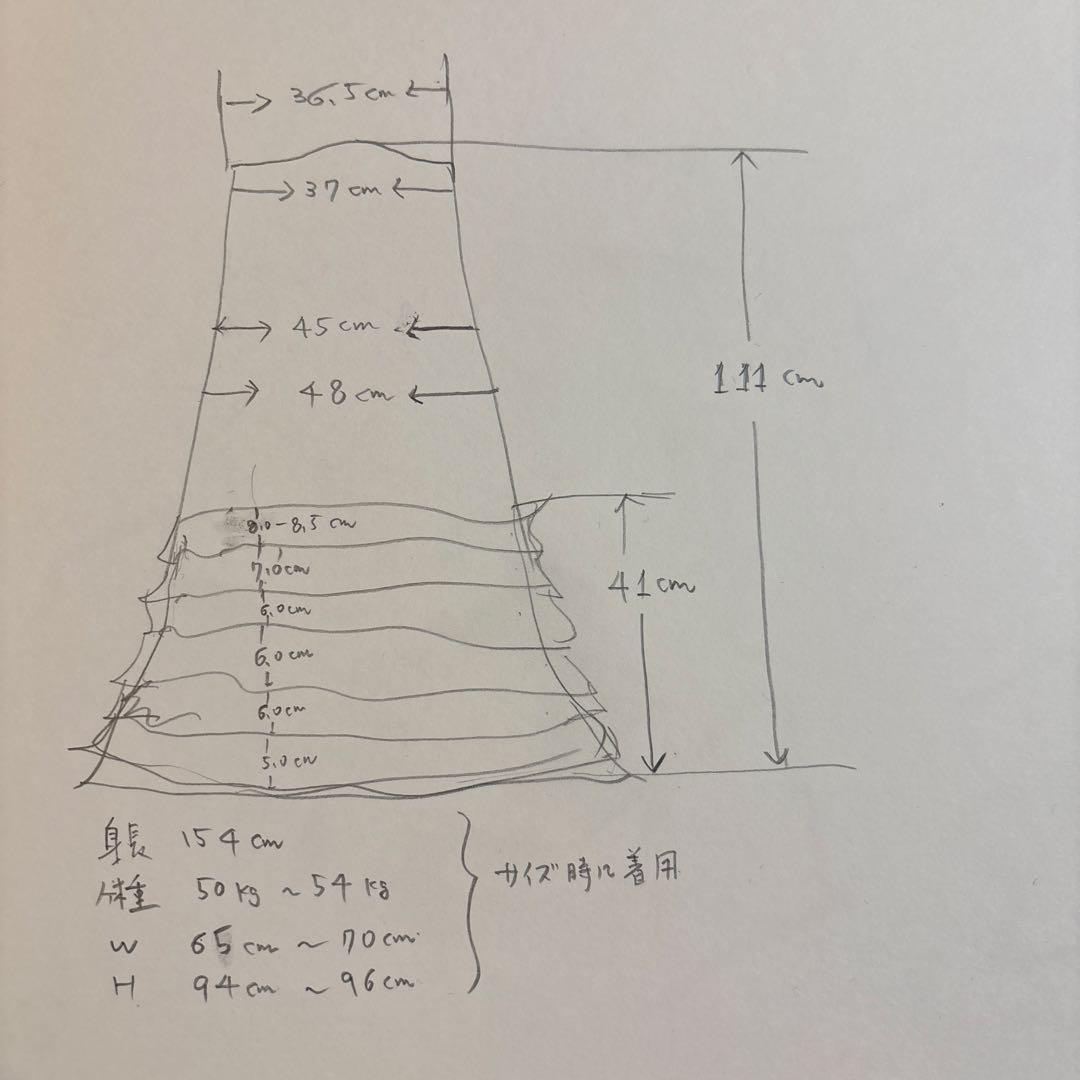 36.5cm
37cm
45cm
48cm
111cm
8.0-8.5cm
7.0cm
6.0cm
41cm
6.0cm
6.0cm
5.0cm
身長 154cm
体種 50kg~54kg
サイズ時に着用
W 65cm~70cm
H 94cm~96cm